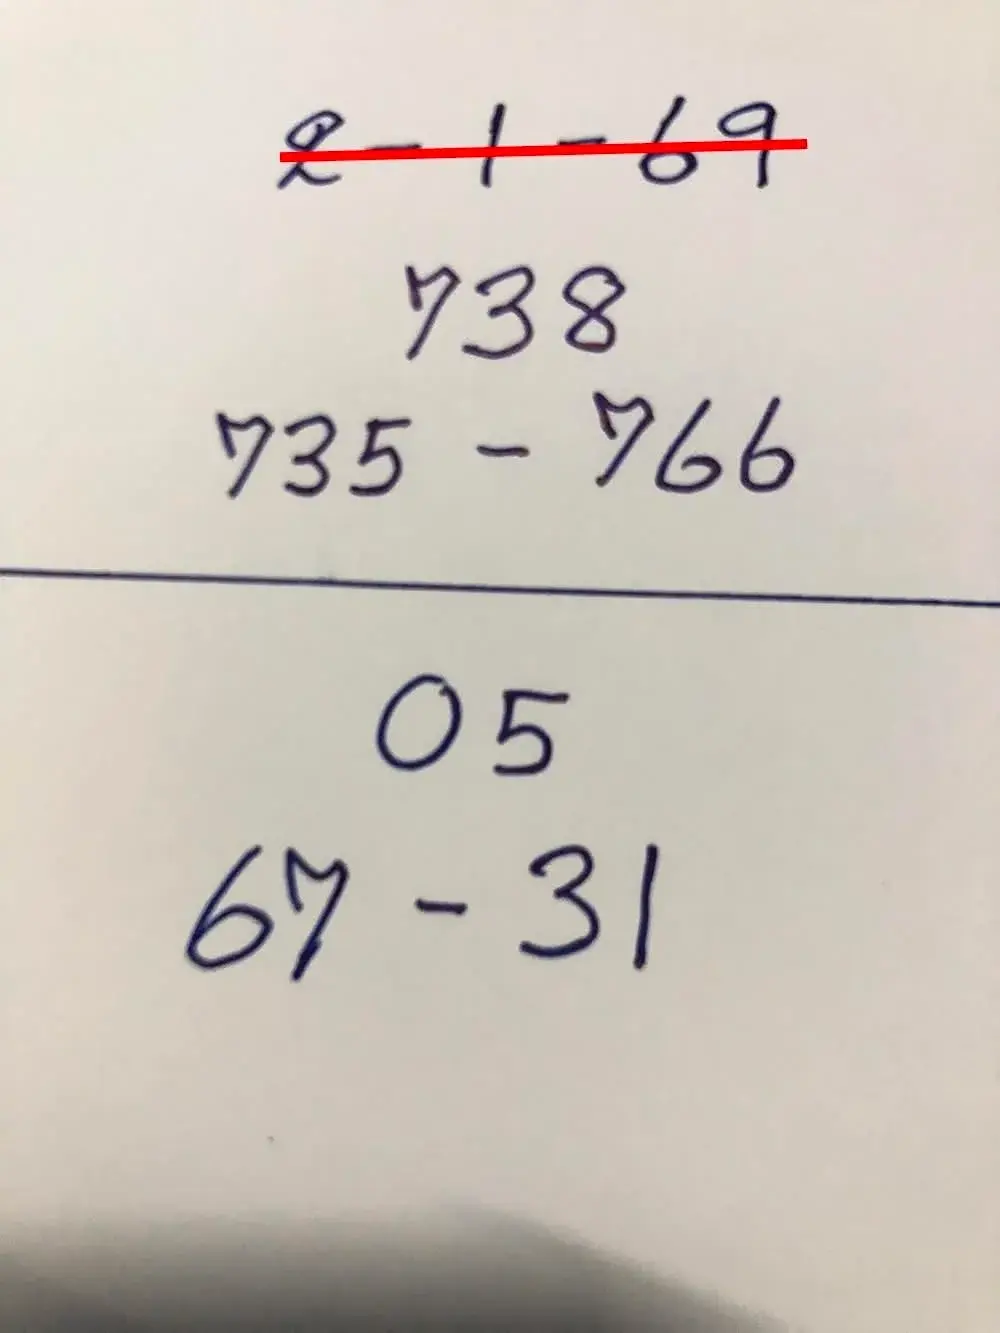 2-1-69
738
735 - 766
05
67 - 31